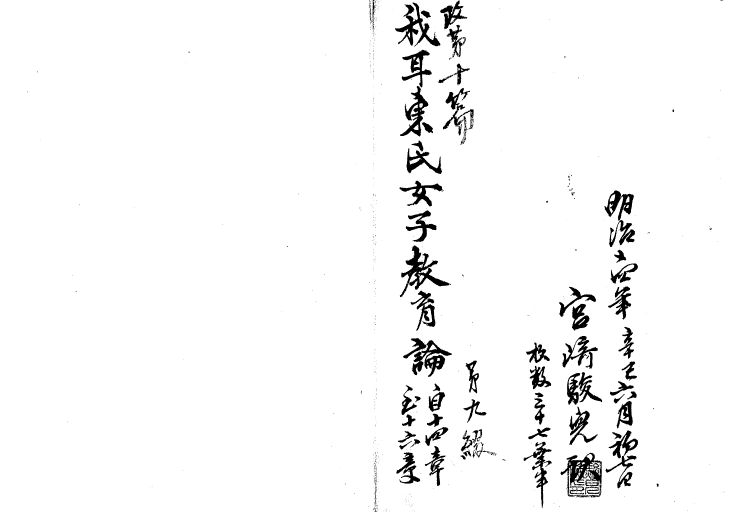 明治十四年辛巳六月初七日
宮﨑駿児
枚数三十七葉半
第九綴
改第十篇
我耳東氏女子教育論
自十四章
至十六章